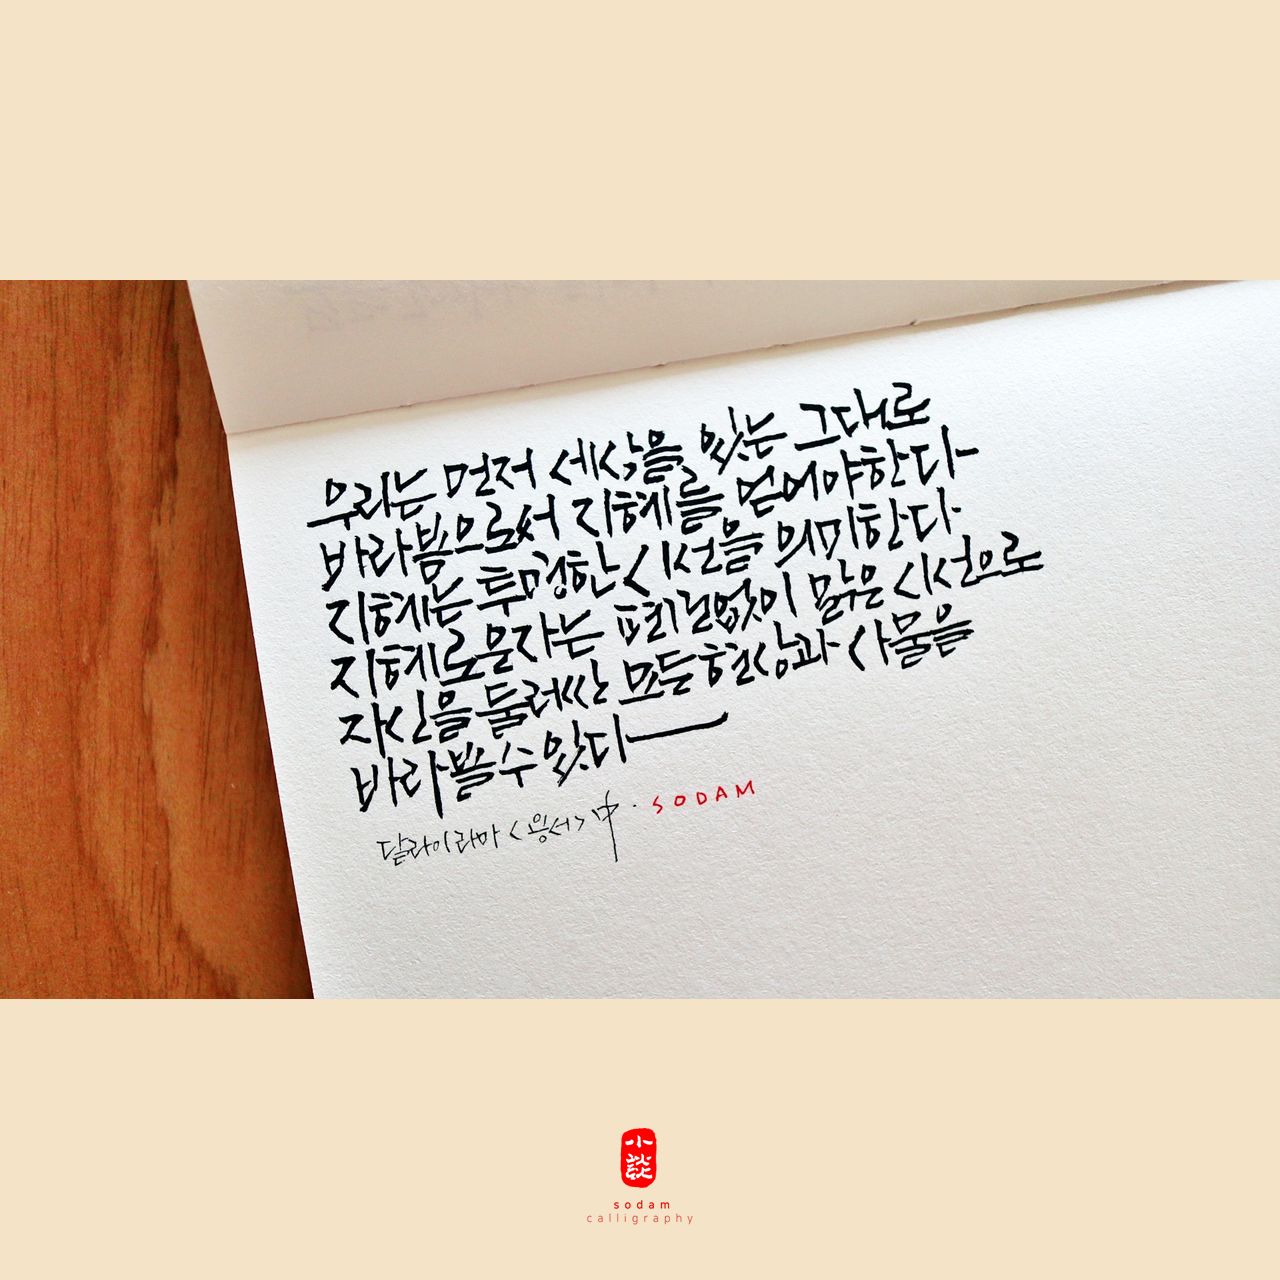 우리는 먼저 세상을 있는 그대로
바라봄으로써 지혜를 얻어야한다
지혜는 투명한 시선을 의미한다
지혜로운자는 편견없이 맑은 시선으로
자신을 둘러싼 모든현상과 사물을
바라볼수있다
달라이라마 <용서> 中 · SODAM
小談
sodam
calligraphy